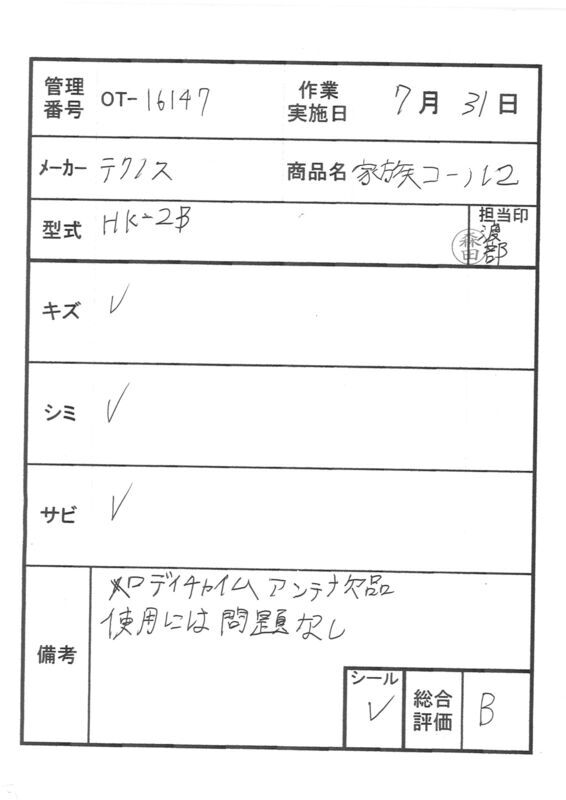 管理番号 OT-16147 作業実施日 7月31日
メーカー テクノス 商品名 家族コール2
型式 HK-2B 担当印
渡部
森田
キズ ✓
シミ ✓
サビ ✓
備考 メロディチャイム アンテナ欠品
使用には問題なし
シール ✓ 総合評価 B